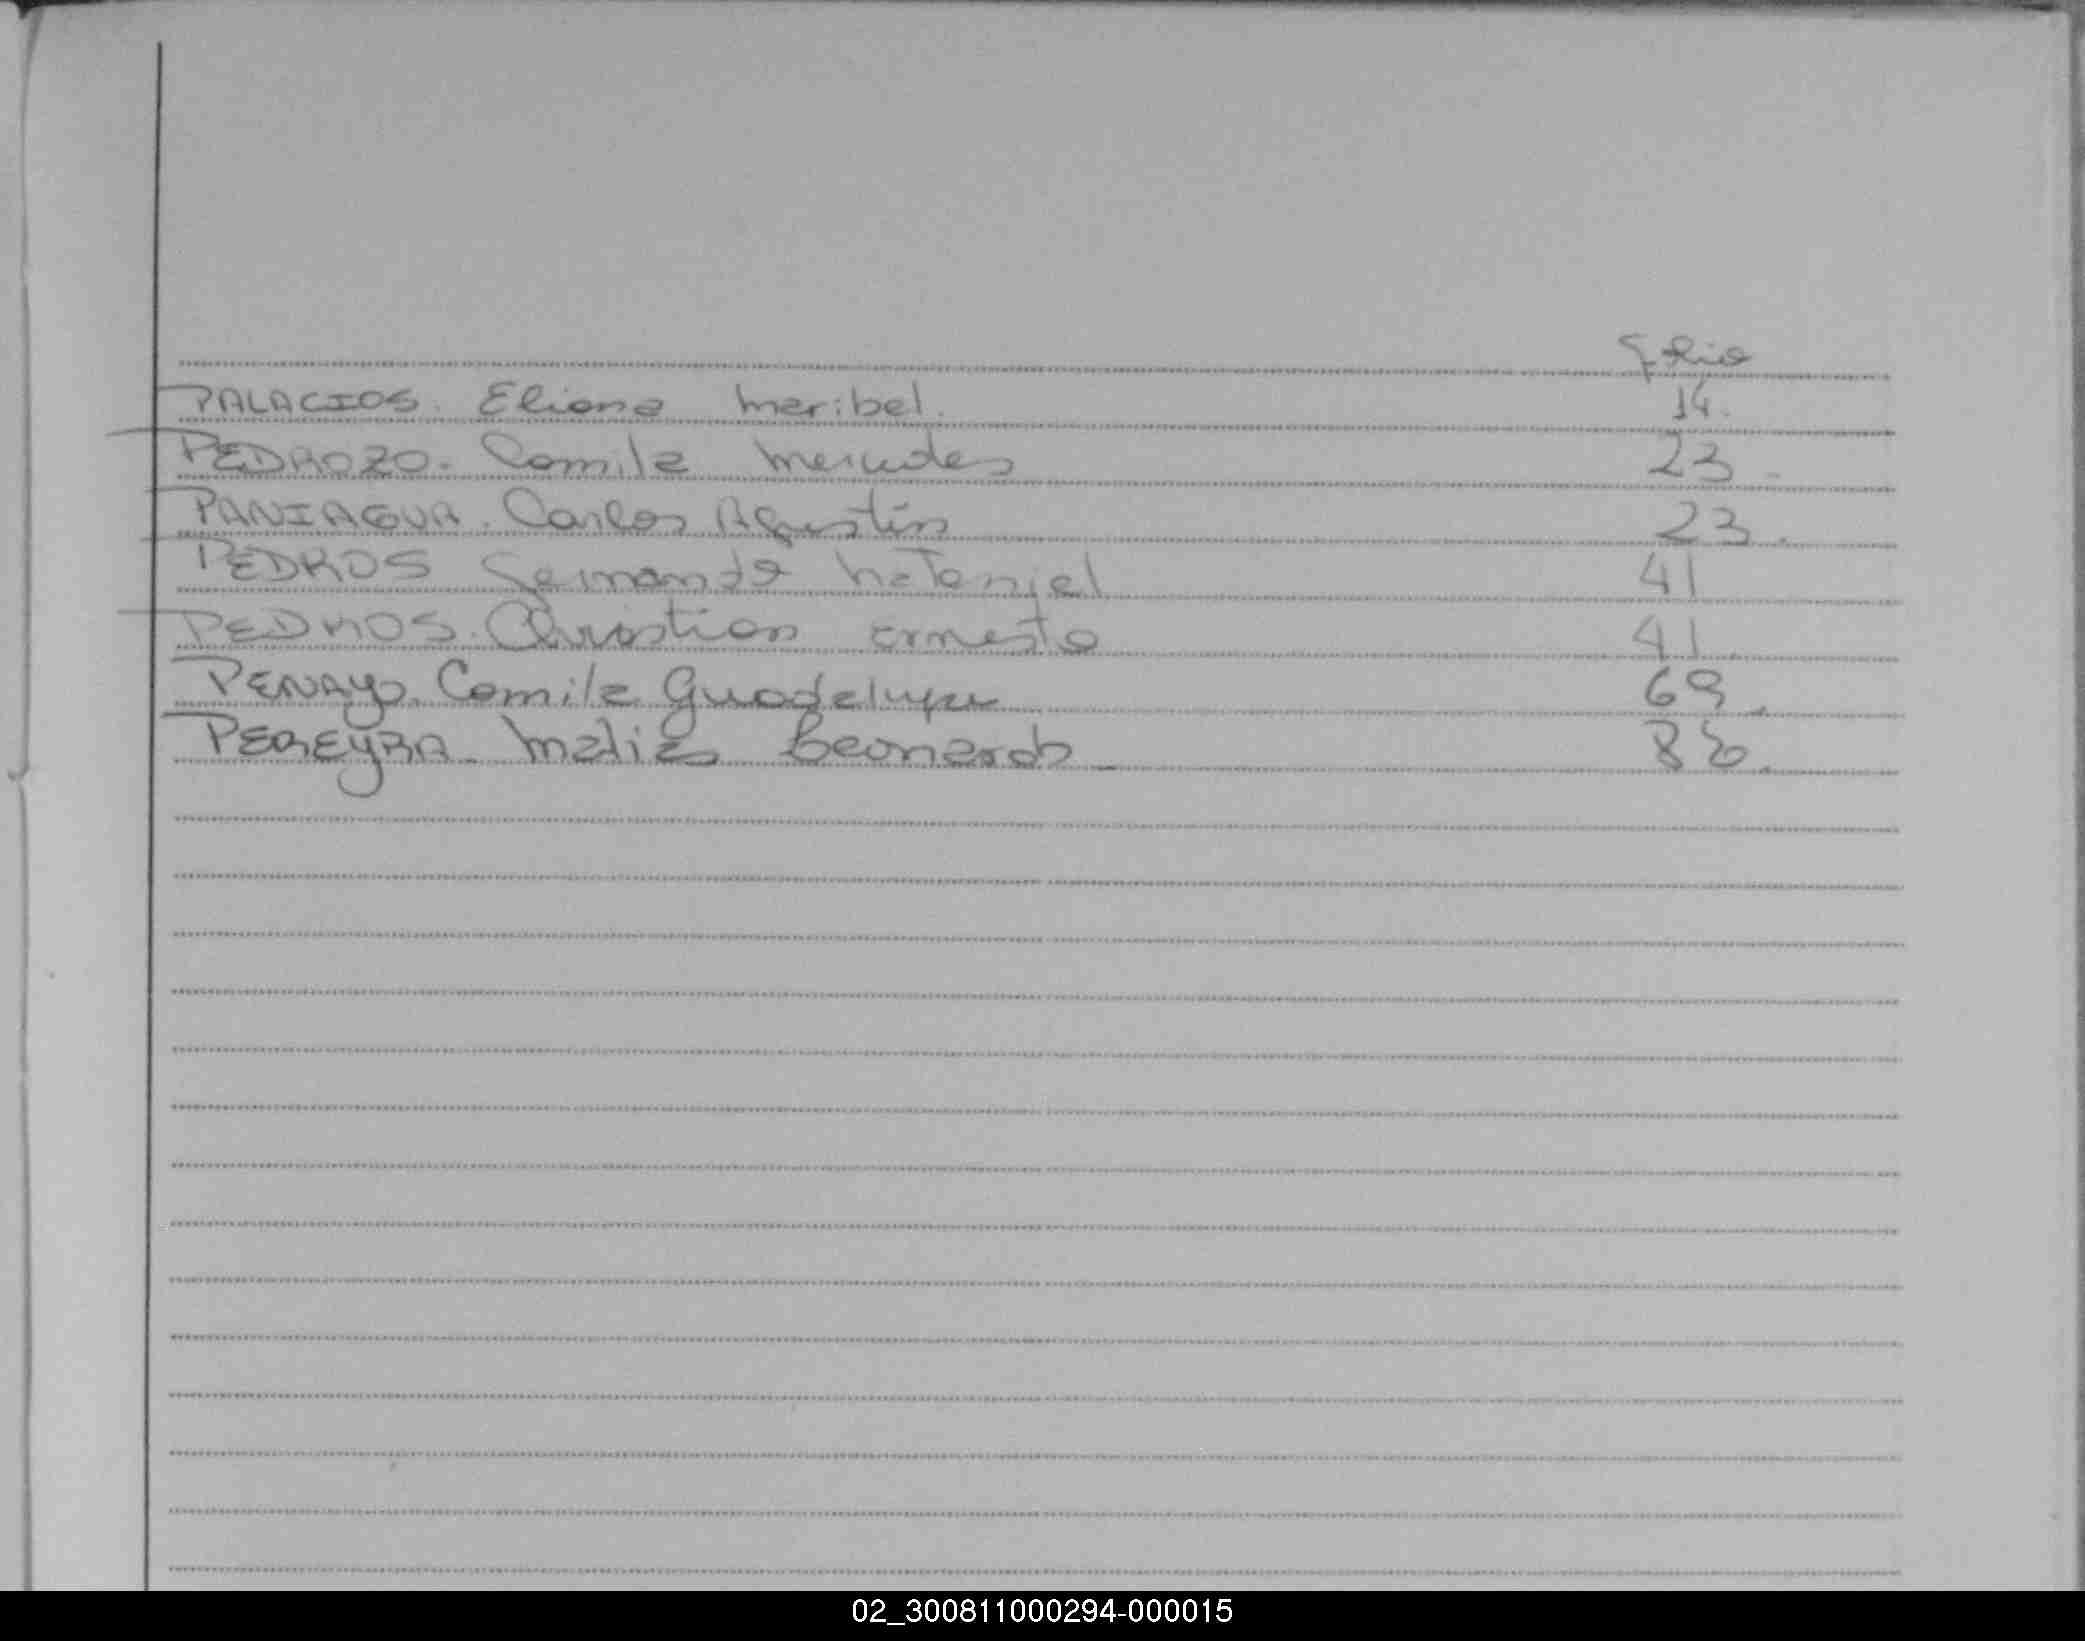 folio
PALACIOS. Eliana Maribel. 14.
PEDROZO. Camila Mercedes 23.
PANIAGUA. Carlos Agustín 23.
PEDROS Fernando Nataniel 41
PEDROS. Christian Ernesto 41.
PENAYO. Camila Guadalupe 69.
PEREYRA. Matias Leonardo 86.
02_300811000294-000015